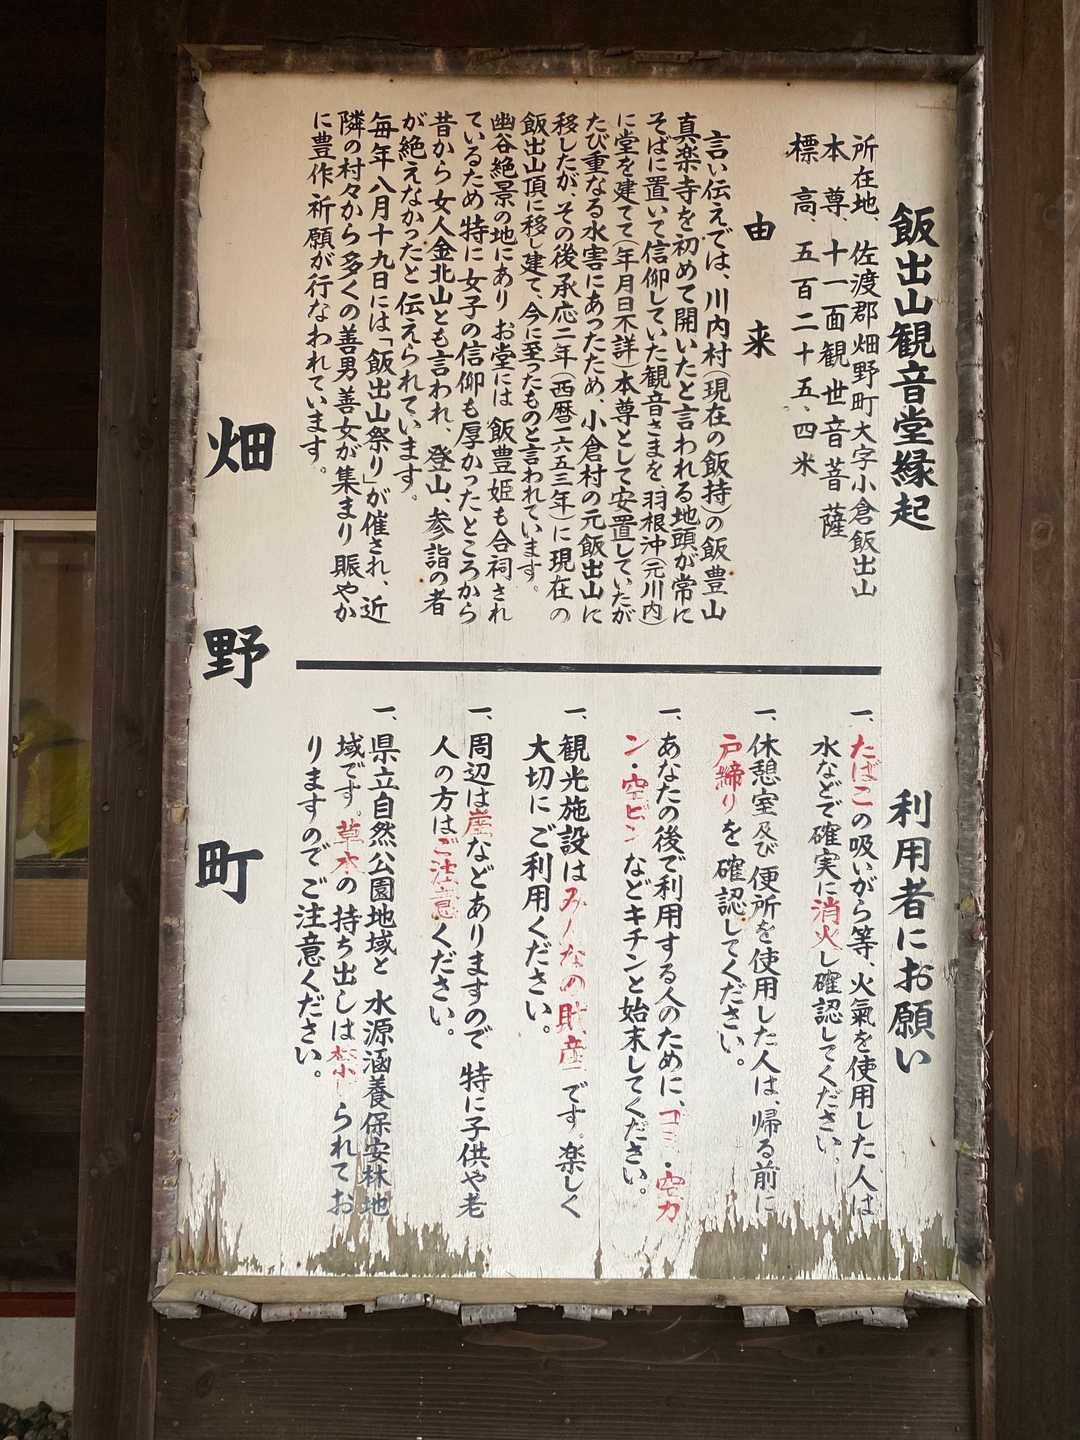 飯出山観音堂縁起
所在地、佐渡郡畑野町大字小倉飯出山
本尊、十一面観世音菩薩
標高、五百二十五、四米
由来
言い伝えでは、川内村(現在の飯持)の飯豊山
真楽寺を初めて開いたと言われる地頭が常に
そばに置いて信仰していた観音さまを、羽根沖(元川内)
に堂を建てて(年月日不詳)本尊として安置していたが
たび重なる水害にあったため、小倉村の元飯出山に
移したが、その後承応二年(西暦一六五三年)に現在の
飯出山頂に移し建て、今に至ったものと言われています。
幽谷絶景の地にあり お堂には 飯豊姫も合祠され
ているため 特に女子の信仰も厚かったところから
昔から女人金北山とも言われ、登山、参詣の者
が絶えなかったと伝えられています。
毎年八月十九日には「飯出山祭り」が催され、近
隣の村々から多くの善男善女が集まり 賑やか
に豊作祈願が行なわれています。
利用者にお願い
一、たばこの吸いがら等、火氣を使用した人は
水などで確実に消火し確認してください。
一、休憩室及び便所を使用した人は、帰る前に
戸締りを確認してください。
一、あなたの後で利用する人のために、ゴミ・空カ
ン・空ビンなどキチンと始末してください。
一、観光施設はみんなの財産です。楽しく
大切にご利用ください。
一、周辺は崖などありますので 特に子供や老
人の方はご注意ください。
一、県立自然公園地域と 水源涵養保安林地
域です。草木の持ち出しは禁じられてお
りますのでご注意ください。
畑野町